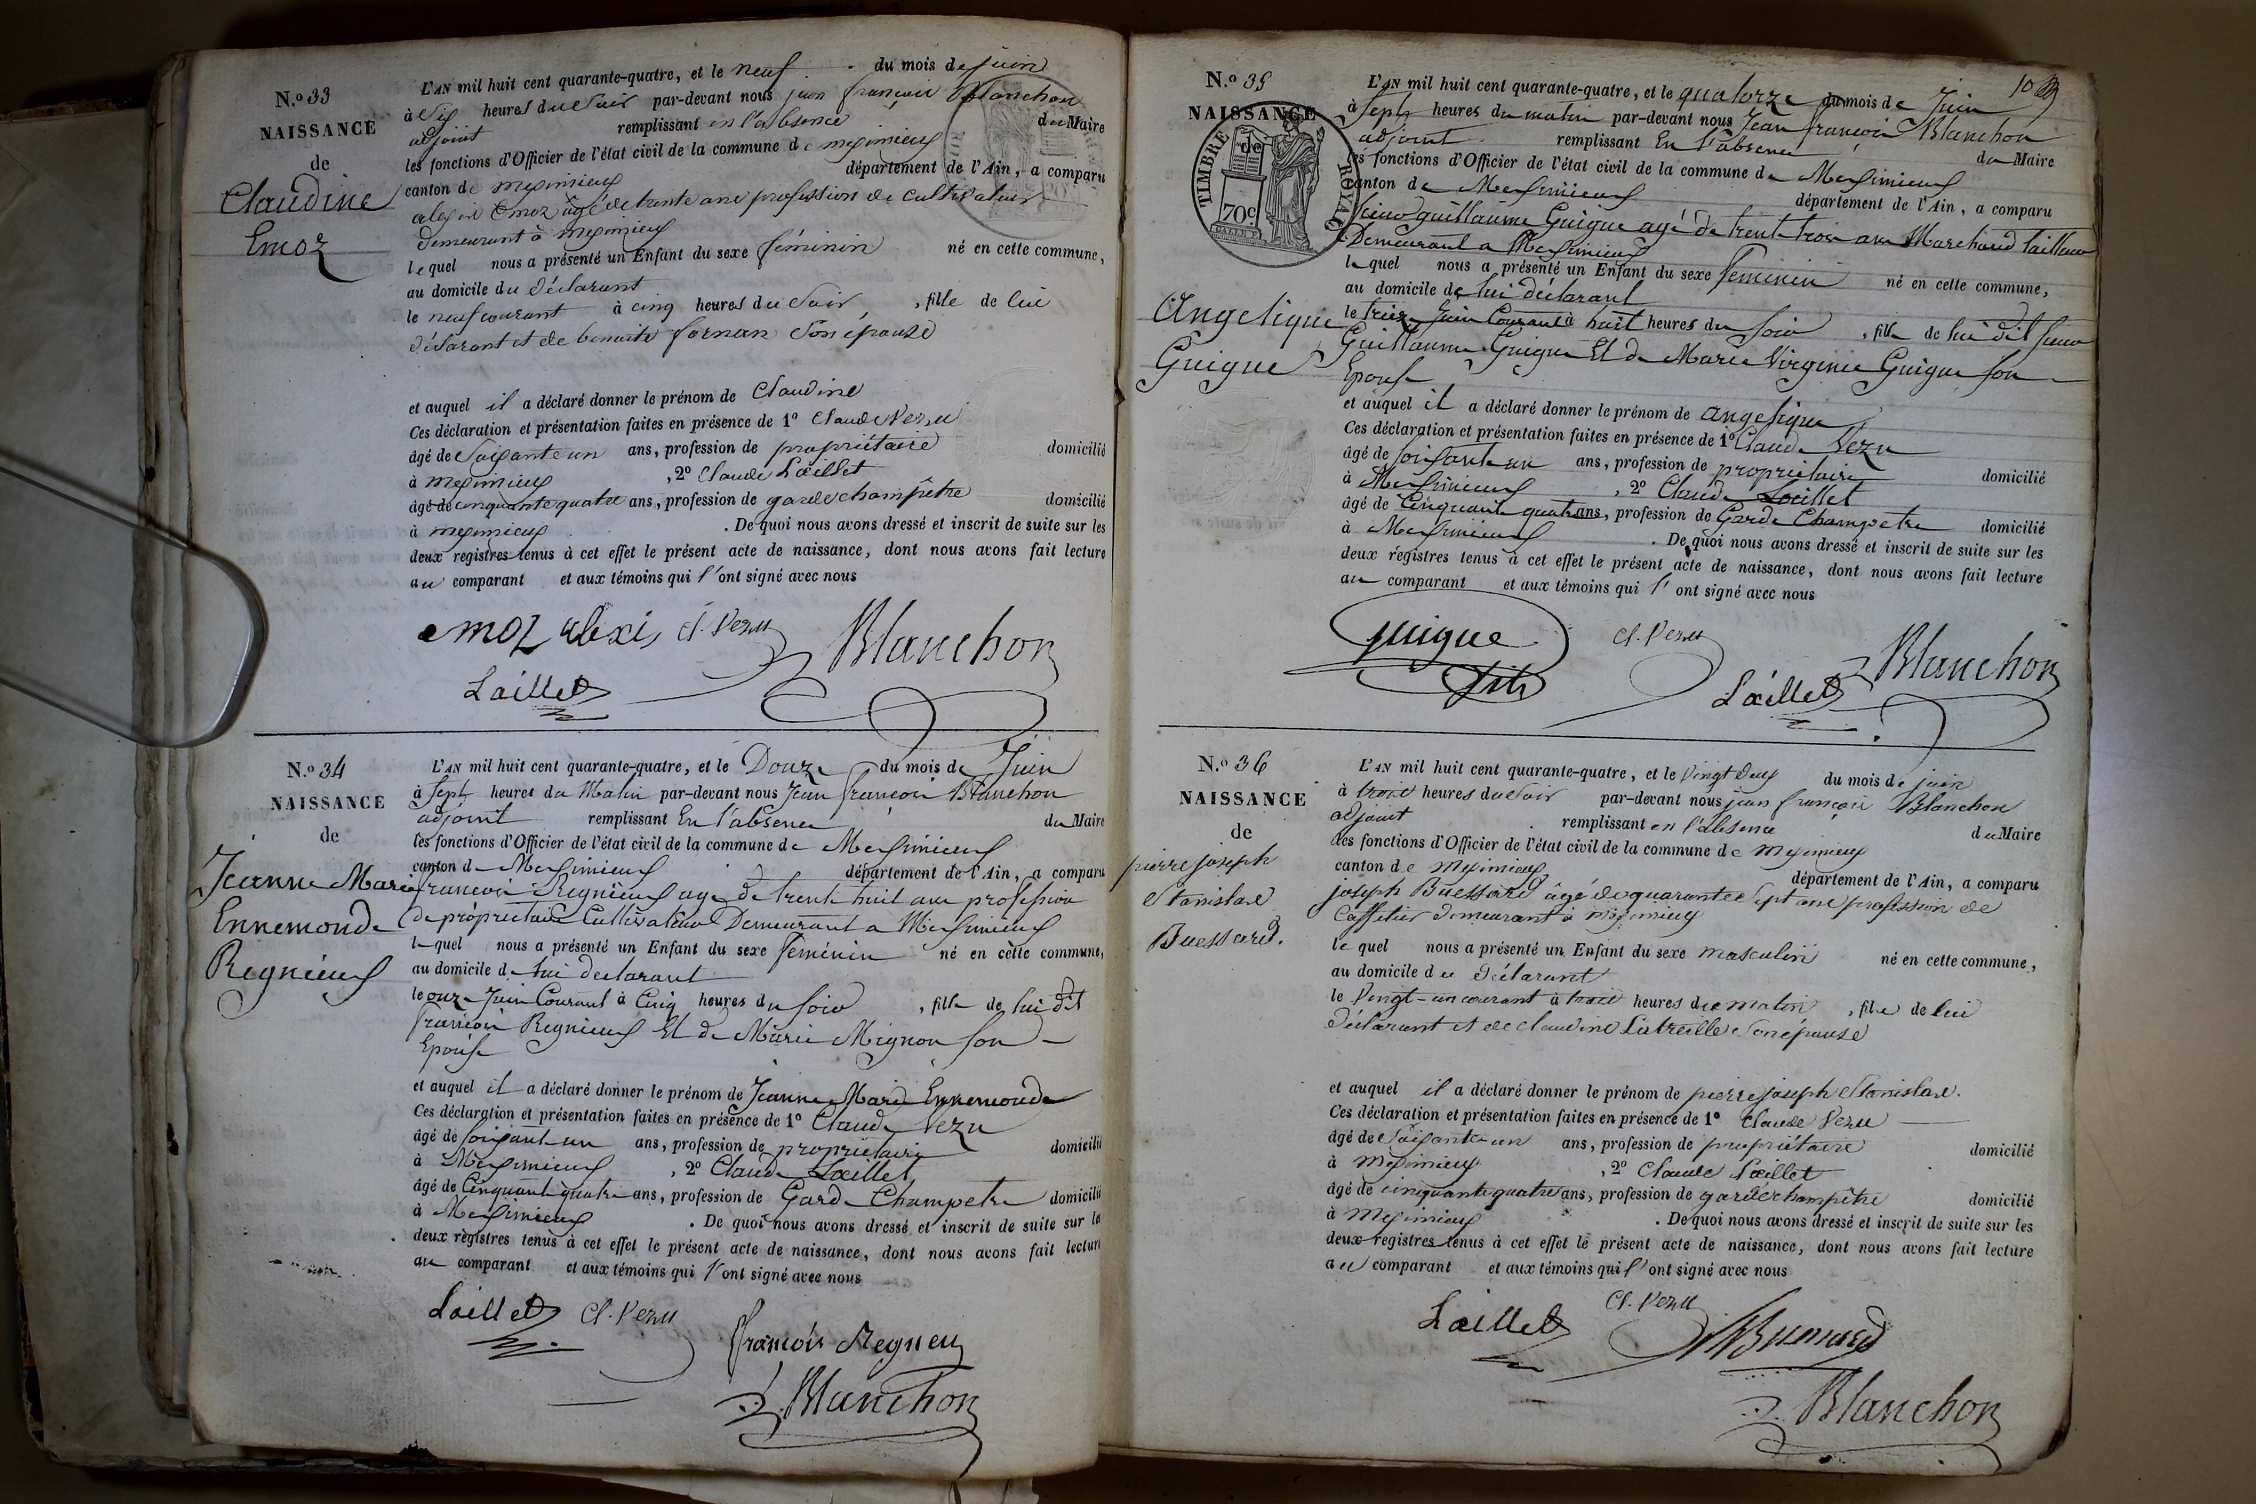 N.º 33
NAISSANCE
de
Claudine
Emoz
L'AN mil huit cent quarante-quatre, et le neuf du mois de juin
à Six heures du Soir par-devant nous jean françois Blanchon
adjoint remplissant en l'absence du Maire
les fonctions d'Officier de l'état civil de la commune de meximieux
canton de meximieux département de l'Ain, a comparu
alexis Emoz âgé de trente ans profession de cultivateur
demeurant à meximieux
lequel nous a présenté un Enfant du sexe féminin né en cette commune,
au domicile du déclarant
le neuf courant à cinq heures du Soir, fille de lui
déclarant et de benoite fornan Son épouse
et auquel il a déclaré donner le prénom de Claudine
Ces déclaration et présentation faites en présence de 1º Claude Vezu
âgé de Soixante un ans, profession de propriétaire domicilié
à meximieux, 2º Claude Lœillet
âgé de cinquante quatre ans, profession de garde champêtre domicilié
à meximieux. De quoi nous avons dressé et inscrit de suite sur les
deux registres tenus à cet effet le présent acte de naissance, dont nous avons fait lecture
au comparant et aux témoins qui l'ont signé avec nous
emoz alexis Cl. Vezu Blanchon
Lœillet
N.º 34
NAISSANCE
de
Jeanne Marie
Ennemonde
Regnieux
L'AN mil huit cent quarante-quatre, et le Douze du mois de Juin
à Sept heures du Matin par-devant nous Jean françois Blanchon
adjoint remplissant En l'absence du Maire
les fonctions d'Officier de l'état civil de la commune de Meximieux
canton de Meximieux département de l'Ain, a comparu
françois Regnieux agé de trente huit ans profession
de propriétaire Cultivateur Demeurant a Meximieux
lequel nous a présenté un Enfant du sexe féminin né en cette commune,
au domicile de lui déclarant
le onze Juin Courant à Cinq heures du Soir, fille de lui dit
françois Regnieux Et de Marie Mignon Son
Epouse
et auquel il a déclaré donner le prénom de Jeanne Marie Ennemonde
Ces déclaration et présentation faites en présence de 1º Claude Vezu
âgé de Soixante un ans, profession de propriétaire domicilié
à Meximieux, 2º Claude Lœillet
âgé de Cinquante quatre ans, profession de Garde Champetre domicilié
à Meximieux. De quoi nous avons dressé et inscrit de suite sur les
deux registres tenus à cet effet le présent acte de naissance, dont nous avons fait lecture
au comparant et aux témoins qui l'ont signé avec nous
Lœillet Cl. Vezu
françois Regnieu
Blanchon
10
N.º 35
NAISSANCE
de
TIMBRE ROYAL
70c
Angelique
Guigue
L'AN mil huit cent quarante-quatre, et le quatorze du mois de Juin
à Sept heures du matin par-devant nous Jean françois Blanchon
adjoint remplissant En l'absence du Maire
les fonctions d'Officier de l'état civil de la commune de Meximieux
canton de Meximieux département de l'Ain, a comparu
guillaume Guigue agé de trente trois ans Marchand tailleur
Demeurant a Meximieux
lequel nous a présenté un Enfant du sexe feminin né en cette commune,
au domicile de lui déclarant
le treize Juin Courant à huit heures du Soir, fille de lui dit
Guillaume Guigue Et de Marie Virginie Guigue Son
Epouse
et auquel il a déclaré donner le prénom de angelique
Ces déclaration et présentation faites en présence de 1º Claude Vezu
âgé de Soixante un ans, profession de propriétaire domicilié
à Meximieux, 2º Claude Lœillet
âgé de Cinquante quatre ans, profession de Garde Champetre domicilié
à Meximieux. De quoi nous avons dressé et inscrit de suite sur les
deux registres tenus à cet effet le présent acte de naissance, dont nous avons fait lecture
au comparant et aux témoins qui l'ont signé avec nous
guigue Cl. Vezu Blanchon
fils Lœillet
N.º 36
NAISSANCE
de
pierre joseph
Stanislas
Buessard.
L'AN mil huit cent quarante-quatre, et le Vingt deux du mois de juin
à trois heures du Soir par-devant nous jean françois Blanchon
adjoint remplissant en l'absence du Maire
les fonctions d'Officier de l'état civil de la commune de meximieux
canton de meximieux département de l'Ain, a comparu
joseph Buessard âgé de quarante Sept ans profession de
Caffetier demeurant à meximieux
lequel nous a présenté un Enfant du sexe masculin né en cette commune,
au domicile du déclarant
le Vingt-un courant à trois heures du matin, fils de lui
déclarant et de claudine Latreille Son épouse
et auquel il a déclaré donner le prénom de pierre joseph Stanislas.
Ces déclaration et présentation faites en présence de 1º Claude Vezu
âgé de Soixante-un ans, profession de propriétaire domicilié
à meximieux, 2º Claude Lœillet
âgé de cinquante quatre ans, profession de garde champêtre domicilié
à meximieux. De quoi nous avons dressé et inscrit de suite sur les
deux registres tenus à cet effet le présent acte de naissance, dont nous avons fait lecture
au comparant et aux témoins qui l'ont signé avec nous
Lœillet Cl. Vezu
Blanchon